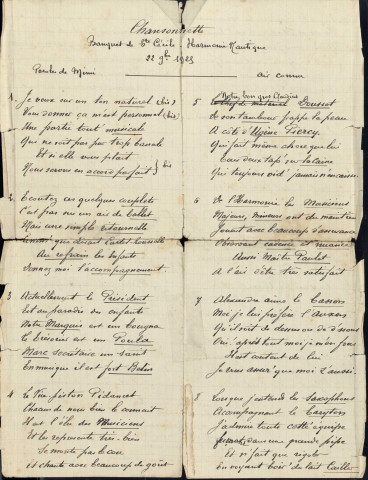 Chansonnette
Banquet de Ste Cécile - Harmonie Nautique
22 9bre 1925
Paroles de Mimi
air connu
1. Je veux sur un ton naturel (bis)
Vous donner ça m'est personnel (bis)
Une partie tout musicale
Qui ne soit pas par trop banale
Et si elle vous plait
Nous serons en accord parfait } bis
2. Ecoutez ces quelques couplets
C'est pas sur un air de ballet
Mais une simple ritournelle
Au refrain les enfants
Donnez moi l'accompagnement.
3 Actuellement le Président
Est au paradis des enfants
Notre Marquis est en
Le Trésorier est un Poula
Marc secrétaire en
En musique il est fort
4 Le Vice piston Pidancet
Chacun de nous bien le connait
Il est l'élu des Musiciens
Et les représente très-bien
Se monte pas le cou
et chante avec beaucoup de goût
5 Notre bon gros Claudius
Doussot
de son tambour frappe la peau
A côté d'Ugine Piercy
Qui fait même chose que lui
Tous deux tap' sur la caisse
Qui toujours vid' jamais n'encaisse.
6 de l'Harmonie les Musiciens
Majeurs, mineurs ont du maintien
Jouent avec beaucoup d'assurance
Observant cadence et nuances
Aussi Maître Paulet
A l'air d'être très satisfait
7 Alexandre aime le Basson
Moi je lui préfère l'
Qu'il soit de dessous ou de d'ssus
Oui après tout moi je m'en fous
Il est content de lui
Je vous assur' que moi z'aussi.
8 Lorsque j'entends les Saxophones
Accompagnant le Baryton
J'admire toute cette équipe
dans une grande pipe
Et si fait que rigoler
en voyant boir' du lait Caillé